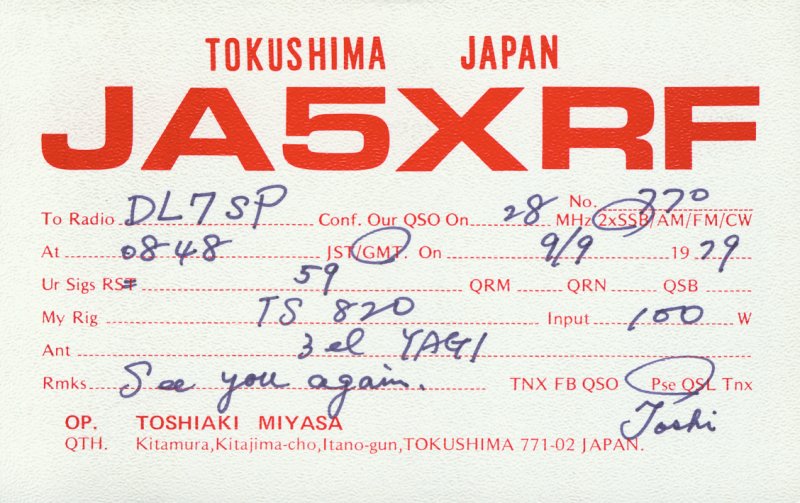 TOKUSHIMA JAPAN
JA5XRF
No. 770
To Radio DL7SP Conf. Our QSO On 28 MHz 2xSSB/AM/FM/CW
At 0848 JST/GMT. On 9/9 1979
Ur Sigs RST 59 QRM QRN QSB
My Rig TS 820 Input 100 W
Ant 3 el YAGI
Rmks See you again. TNX FB QSO Pse QSL Tnx
Toshi
OP. TOSHIAKI MIYASA
QTH. Kitamura,Kitajima-cho,Itano-gun,TOKUSHIMA 771-02 JAPAN.